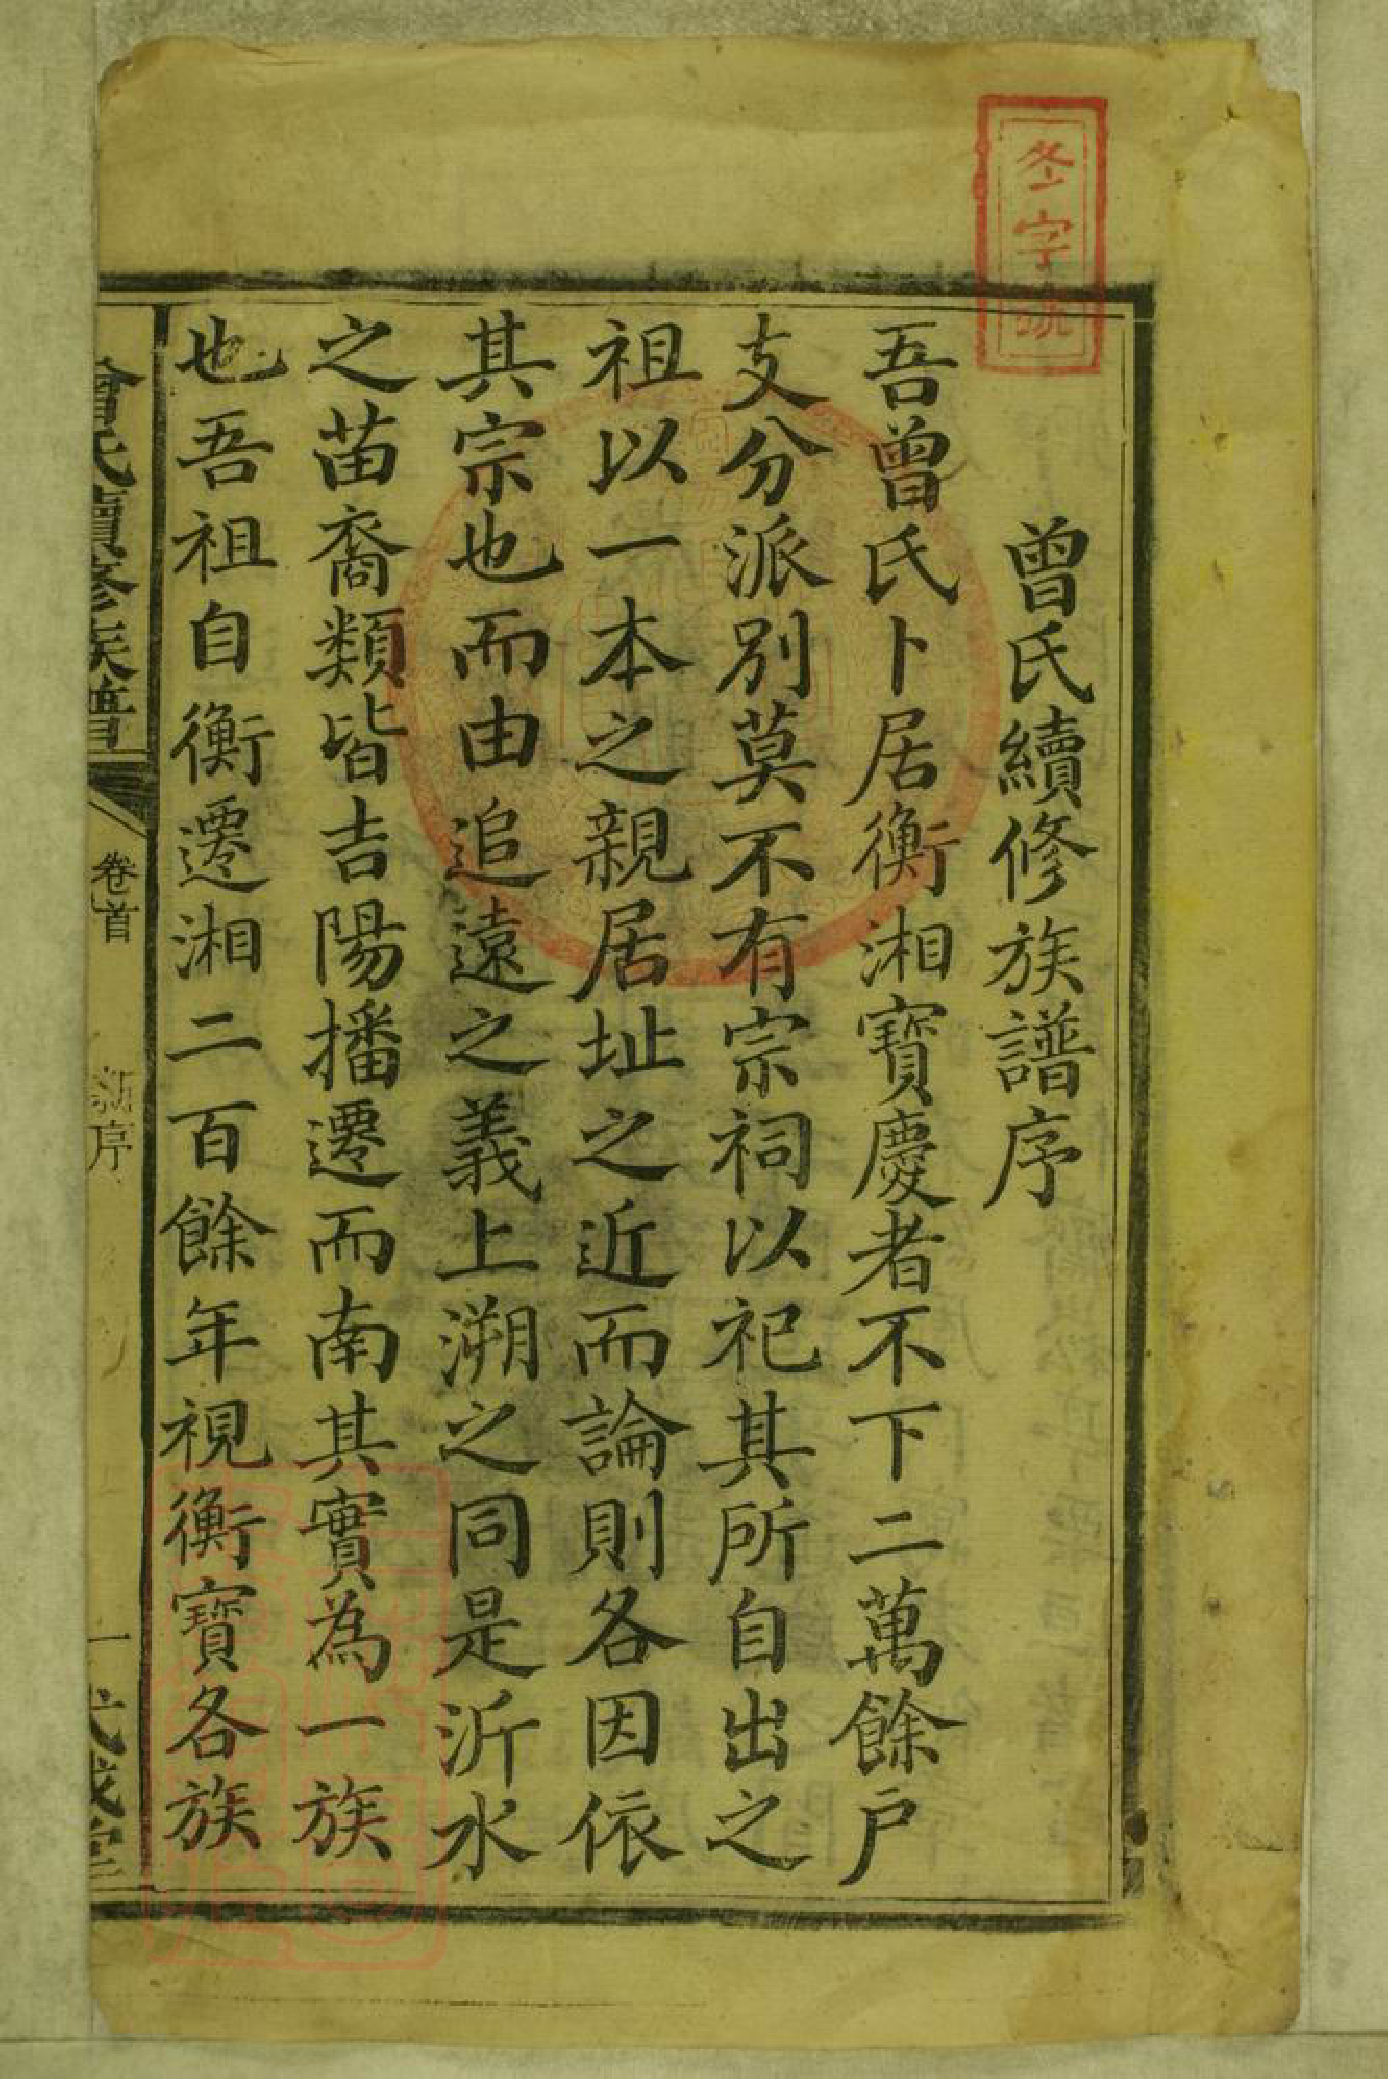 曾氏續修族譜序
吾曾氏卜居衡湘寶慶者不下二萬餘戶
支分派別莫不有宗祠以祀其所自出之
祖以一本之親居址之近而論則各因依
其宗也而由追遠之義上溯之同是沂水
之苗裔類皆吉陽播遷而南其實為一族
也吾祖自衡遷湘二百餘年視衡寶各族
曾氏續修族譜
卷首
新序
一